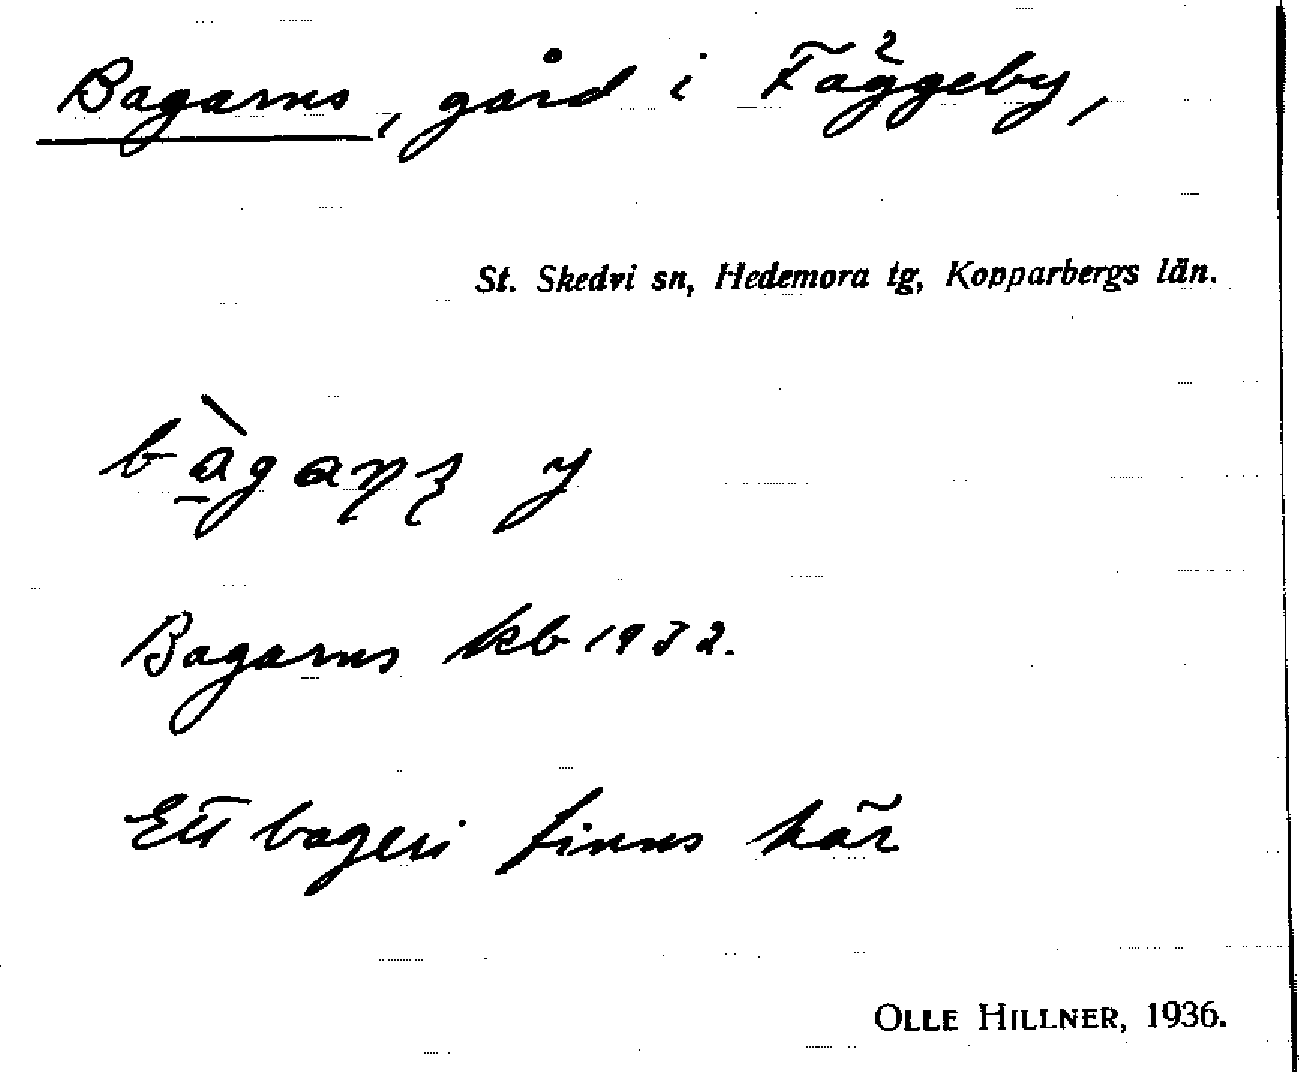 Bagarns, gård i Fäggeby,
St. Skedvi sn, Hedemora tg, Kopparbergs län.
Bagarns kb 1932.
Ett bageri finns här
OLLE HILLNER, 1936.